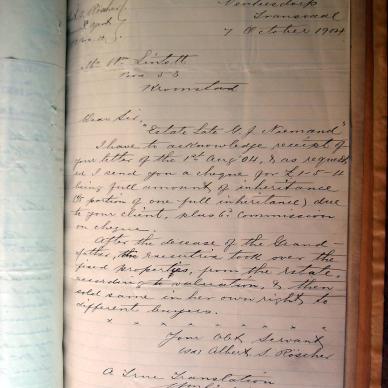 Ventersdorp
Transvaal
7 October 1904
Mr Wm Lintott
Box 53
Kroonstad
Dear Sir,
"Estate Late G. J. Niemand"
I have to acknowledge receipt of
your letter of the 1st Aug '04, & as request
ed I send you a cheque for £1-5-11
being full amount of inheritance
portion of one full inheritance) due
to your client, plus 6d commission
on cheque.
After the decease of the Grand
father, the executrix took over the
fixed properties, from the estate,
according to valuation, & then
sold same in her own right, to
different buyers.
" " " " " " "
Your Obt Servant
was Albert S. Röscher
A True Translation